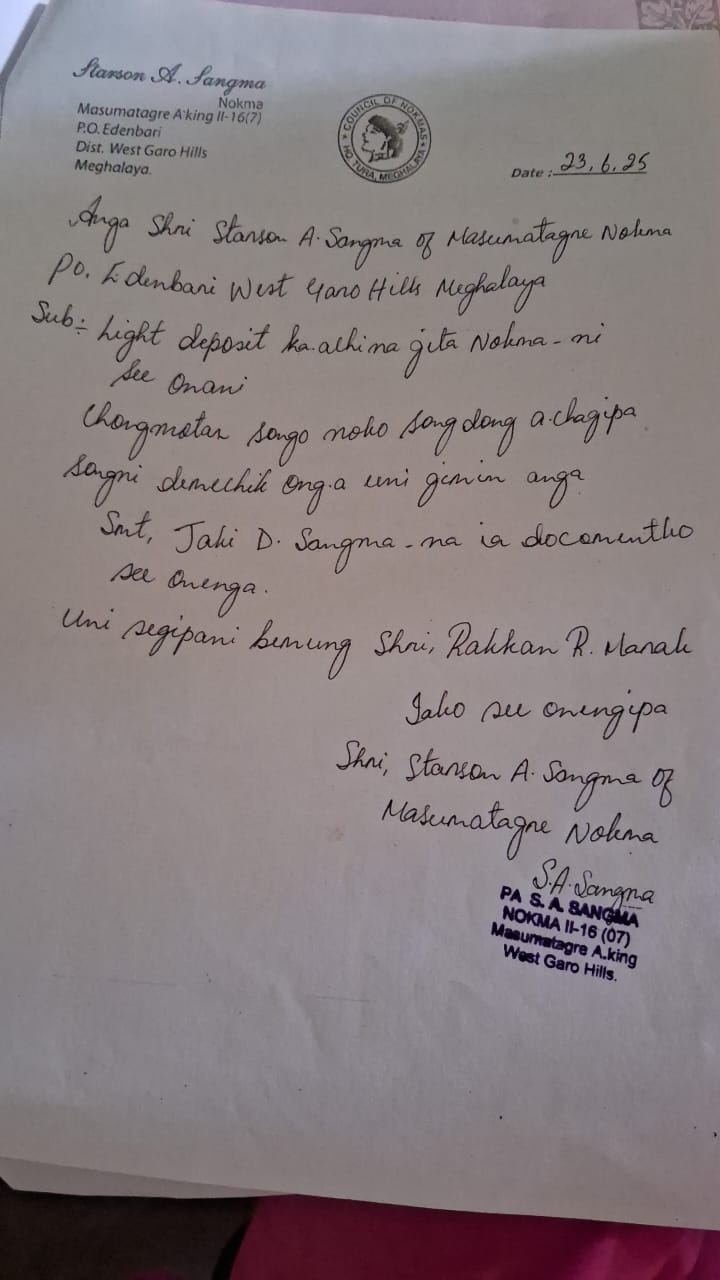 Starson A. Sangma
Nokma
Masumatagre A'king II-16(7)
P.O. Edenbari
Dist. West Garo Hills
Meghalaya.
COUNCIL OF NOKMAS
HQ TURA, MEGHALAYA
Date : 23.6.25
Anga Shri Starson A. Sangma of Masumatagre Nokma
Po. Edenbari West Garo Hills Meghalaya
Sub:- Light deposit ka.akhina gita Nokma-ni
see onani
Chongmotan songo noko song dong a.chagipa
songni demechik ong.a uni gimin anga
Smt, Jaki D. Sangma-na ia documentko
see onenga.
Uni segipani bimung Shri, Rakkan R. Marak
Iako see onengipa
Shri, Starson A. Sangma of
Masumatagre Nokma
S.A. Sangma
PA S. A. SANGMA
NOKMA II-16 (07)
Masumatagre A.king
West Garo Hills.